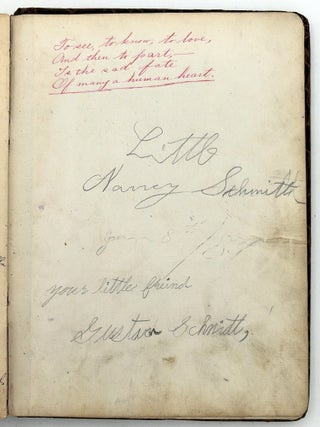 To see, to know, to love,
And then to part,—
Is the sad fate
Of many a human heart.
Little
Nancy
your little friend
Gustav Schmidt,